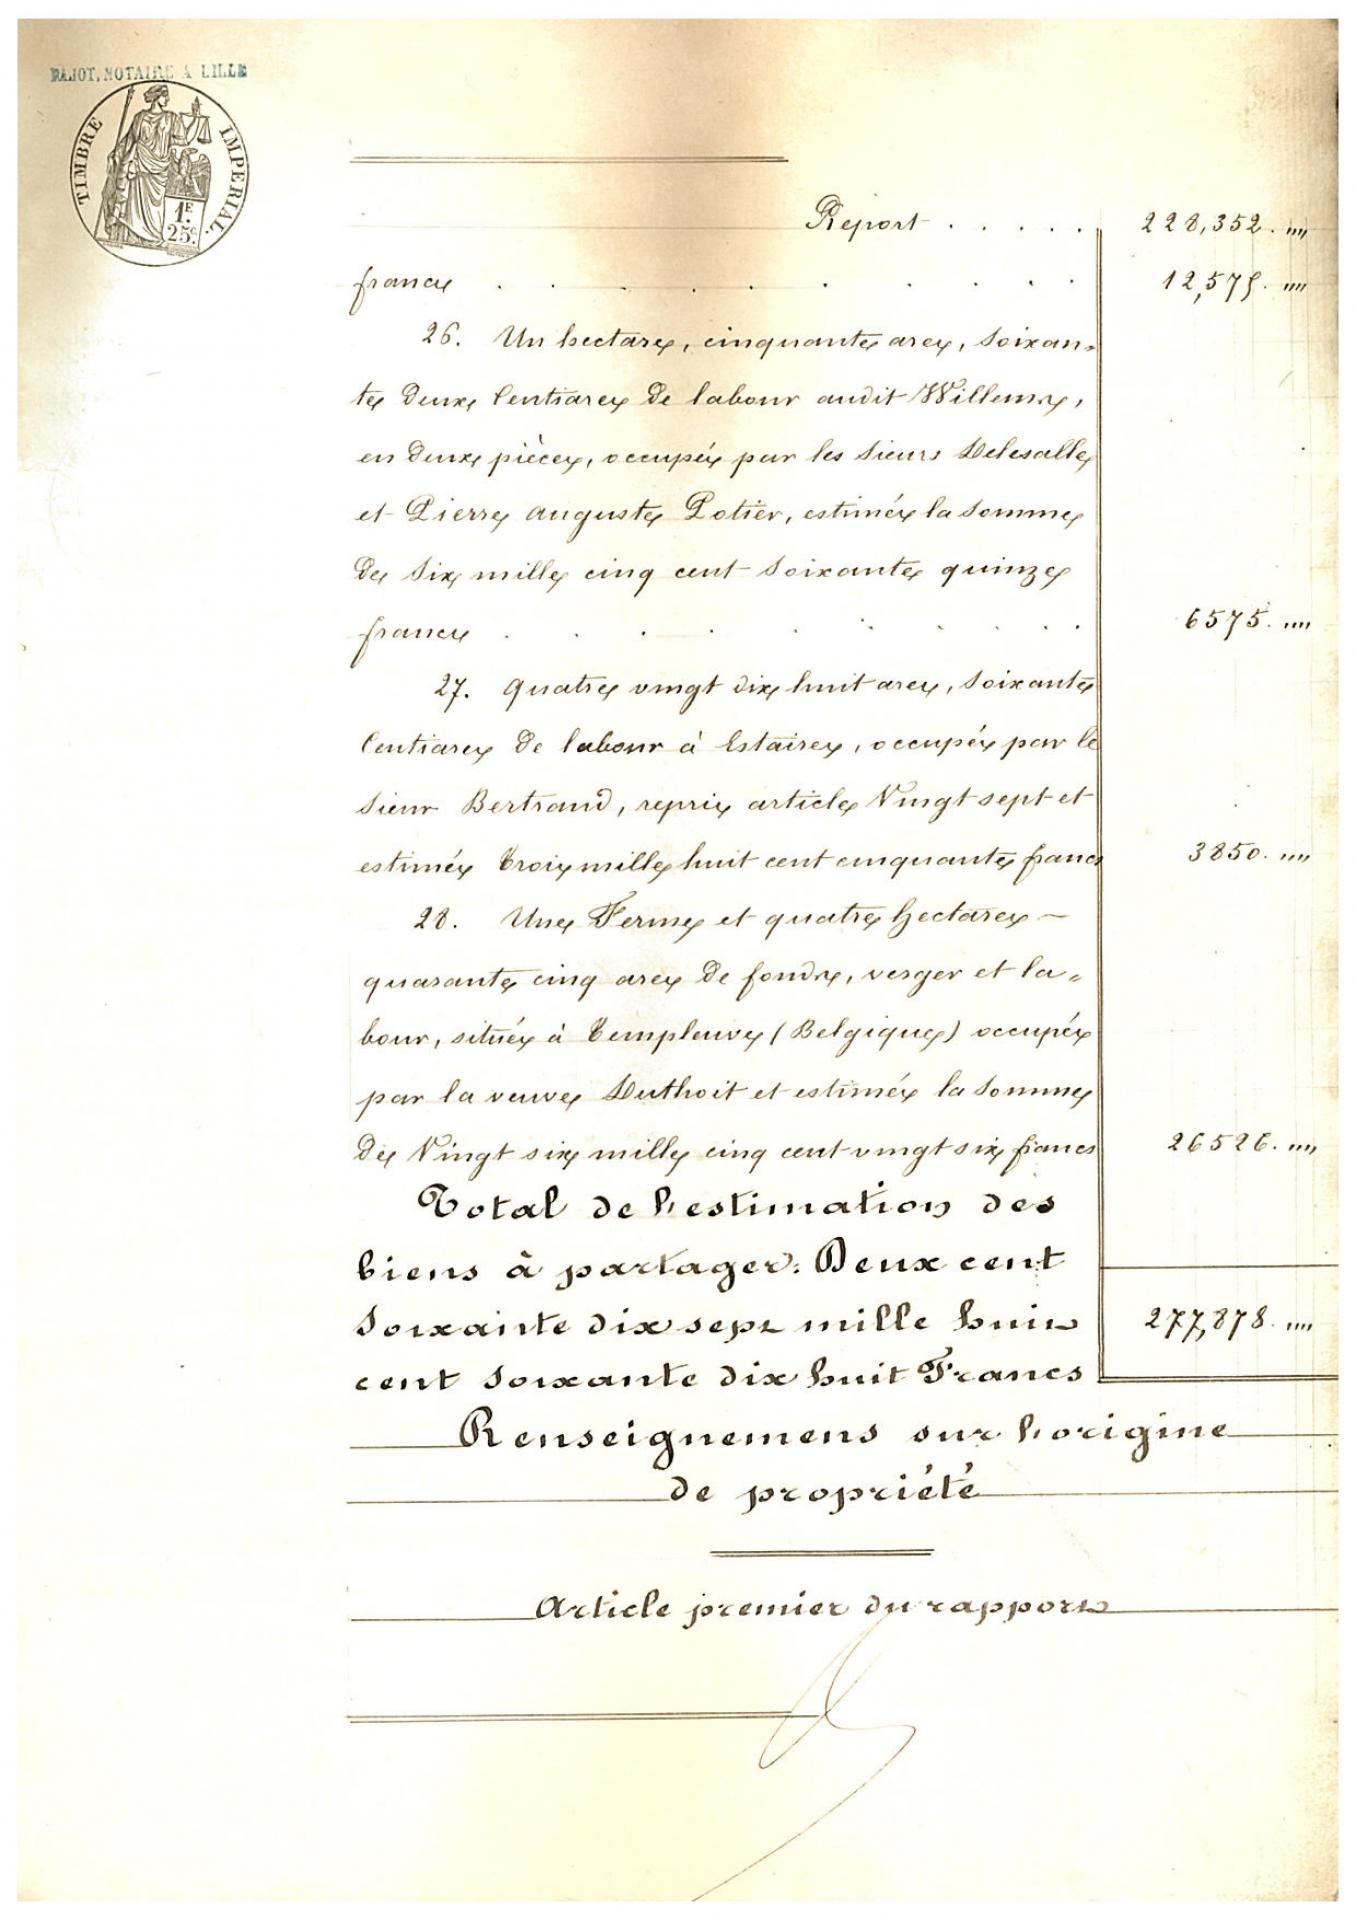 PAJOT, NOTAIRE A LILLE
TIMBRE IMPERIAL.
1F.
25c.
Report . . . . . 228,352. ""
francs . . . . . . . . . 12,575. ""
26. Un hectare, cinquante ares, soixan=
te deux centiares de labour audit Willems,
en deux pièces, occupés par les sieurs Delesalle
et Pierre Auguste Potier, estimés la somme
de six mille cinq cent soixante quinze
francs . . . . . . . . . 6575. ""
27. Quatre vingt dix huit ares, soixante
centiares de labour à Estaires, occupés par le
sieur Bertrand, repris article Vingt sept et
estimés trois mille huit cent cinquante francs 3850. ""
28. Une Ferme et quatre hectares —
quarante cinq ares de fonds, verger et la=
bour, situés à Templeuve (Belgique) occupés
par la veuve Duthoit et estimés la somme
de Vingt six mille cinq cent vingt six francs 26526. ""
Total de l'estimation des
biens à partager: Deux cent
soixante dix sept mille huit 277,878. ""
cent soixante dix huit Francs
Renseignemens sur l'origine
de propriété
Article premier du rapport